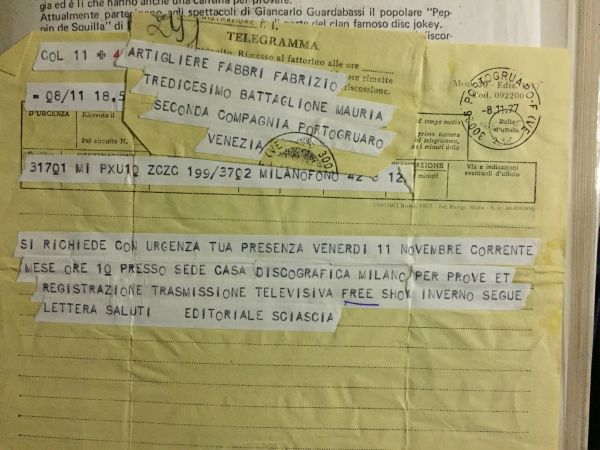 gia ed è lì che hanno anche una cantina per provare.
Attualmente partecipano agli spettacoli di Giancarlo Guardabassi il popolare "Pep-
pin de Squilla" di
del clan famoso disc jokey.
291
TELEGRAMMA
COL 11 + 4
ARTIGLIERE FABBRI FABRIZIO
TREDICESIMO BATTAGLIONE MAURIA
SECONDA COMPAGNIA PORTOGRUARO
VENEZIA
= 08/11 18.5
D'URGENZA
Ricevuto il
Pel circuito N.
Ricevasi al fattorino alle ore
riscossione.
Cod. 092200
PORTOGRUARO-F (VE)
-8.11.77
Bollo
d'ufficio
Via e indicazioni
eventuali d'ufficio
31701 MI PXU10 ZCZC 199/3702 MILANOFONO 42 8 12
SI RICHIEDE CON URGENZA TUA PRESENZA VENERDI 11 NOVEMBRE CORRENTE
MESE ORE 10 PRESSO SEDE CASA DISCOGRAFICA MILANO PER PROVE ET
REGISTRAZIONE TRASMISSIONE TELEVISIVA FREE SHOW INVERNO SEGUE
LETTERA SALUTI EDITORIALE SCIASCIA